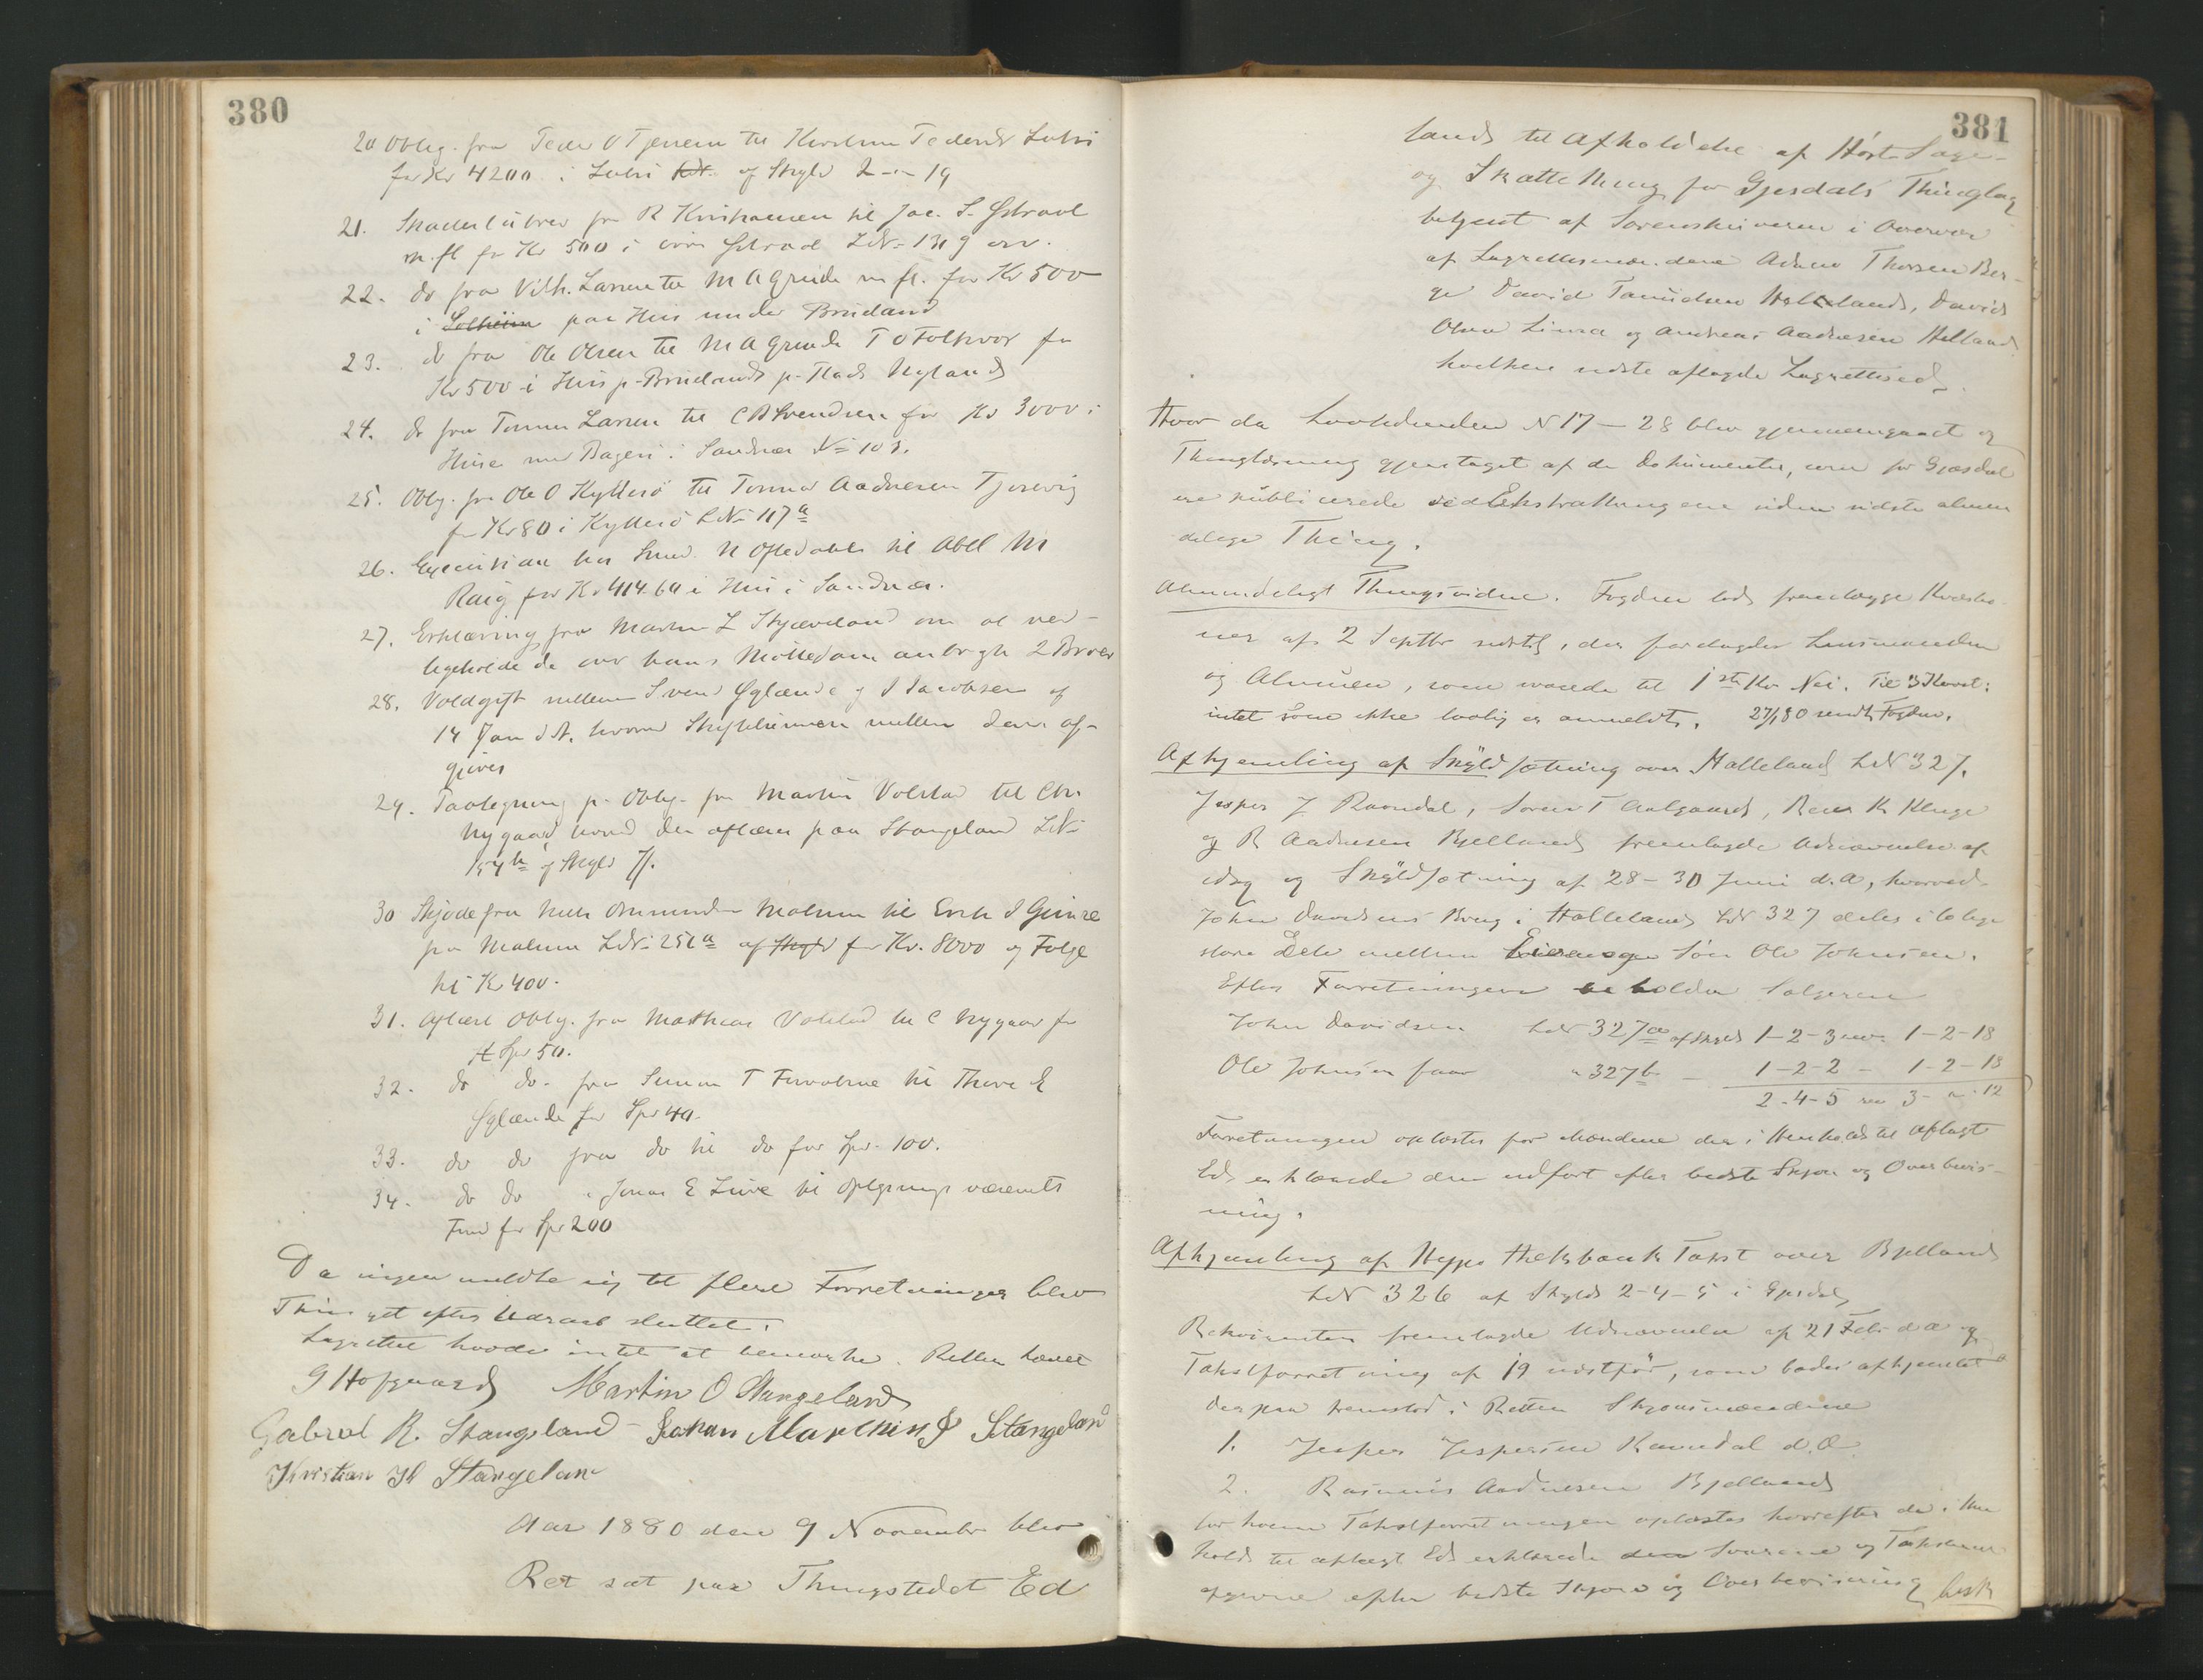 380
20 Oblig. fra Peder O Tjensvem til Karoline Pedersdr Lutsi
for Kr 4200 i Lutsi af Skyld 2 - " - 19
21. Skadesløsbrev fra R Kristiansen til Jac. S. Østraat
m. fl for Kr 500 i Østraat LN: 139
22. do fra Vilh. Larsen til M A Grude m fl. for Kr 500
i Solheim paa Hus under Brueland
23. do fra Ole Olsen til M A Grude T O Folkvor for
Kr 500 i Hus p. Bruelands p. Plads Nyland
24. do fra Tonnes Larsen til C B Svendsen for Kr 3000 i
Huse med Bageri i Sandnæs No 103.
25. Oblig. fra Ole O Kyllesø til Tonnes Aadnesen Tjosevig
for Kr 80 i Kyllesø LN: 117a
26. Execution hos Smed N Oftedahl til Abel M
Raug for Kr 414.64 i Hus i Sandnæs.
27. Erklæring fra Martin L Skjæveland om at ved-
ligeholde de over hans Mølledam anbragte 2 Broer
28. Voldgift mellem Svend Øglænd og J Jacobsen af
14 Jan d A. hvorved Skyldelinien mellem dem af-
gjøres
29. Paategning p. Oblig. fra Martin Volstad til Chr
Nygaard hvorved den aflæses paa Stangeland LN:
154b af Skyld
30 Skjøde fra Niels Ommundsen Malmin til Erik S Gimre
paa Malmin LN: 251a af Skyld for Kr. 8000 og Følge
til Kr 400.
31. Aflæst Oblig. fra Mathias Volstad til C Nygaard for
Spd 50.
32. do do. fra Simon T Foss til Thore E
Øglænde for Spd 40.
33. do do fra do til do for Spd. 100.
34. do do " Jonas E Lure til Oplysningsvæsenets
Fond for Spd 200
Da ingen meldte sig til flere Forretninger blev
Thinget efter Udraab sluttet.
Lagrettet havde intet at bemærke. Retten hævet
G Hofgaard Martin O Stangeland
Gabriel R. Stangeland - Johan Marthin J Stangeland
Kristian H Stangeland
Aar 1880 den 9 November blev
Ret sat paa Thingstedet Ed
381
lands til Afholdelse af Høst-Sage-
og Skattething for Gjesdals Thinglag
betjent af Sorenskriveren i Overvær
af Lagrettesmændene Adne Thorsen Ber-
ge David Tanudsen Hølleland, David
Olsen Limca og Andreas Aadnesen Helland
hvilken sidste aflagde Lagretteed.
Hvor da Lovtidenden N 17 - 28 blev gjennemgaaet og
Thinglæsning gjentaget af de Dokumenter, som for Gjesdal
ere publicerede ved Extrathingene siden sidste almin
delige Thing.
Almindeligt Thingsvidne. Fogden lod fremlægge Kvæstio-
ner af 2 Septbr sidstl. der foredagdes Lensmanden
og Almuen, som svarede til 1ste Kv Nei. Til 3 Kvæst:
intet som ikke lovlig er anmeldt. 27/1 80 sendt Fogden.
Afhjemling af Skyldsætning over Halleland LN 327.
Jesper J Ravndal, Søren T Aalgaard, Reier K Kluge
og R Aadnesen Bjelland fremlagde Udnævnelse af
idag og Skyldsætning af 28 - 30 Juni d. A, hvorved
John Davidsens Brug i Halleland LN 327 deles i 2 lige
store Dele mellem Eieren og Søn Ole Johnsen.
Efter Forretningen beholder Sælgeren
John Davidsen LN 327a af Skyld 1-2-3 rev. 1-2-18
Ole Johnsen faar " 327b - 1-2-2 - 1-2-18
2-4-5 rev 3 - " - 12
Forretningen oplæstes for Mændene der i Henhold til aflagt
Ed erklærede den udført efter bedste Skjøn og Overbevis-
ning.
Afhjemling af Hypothekbank Taxt over Bjelland
LN 326 af Skyld 2-4-5 i Gjesdal
Rekvirenten fremlagde Udnævnelse af 21 Feb. d A og
Takstforretning af 19 næstfør, som bades afhjemlet
der paa fremstod i Retten Skjønsmændene
1. Jesper Jespersen Ravndal d. O.
2. Rasmus Aadnesen Bjelland
for hvem Takstforretningen oplæstes hvorefter de i Hen
hold til aflagt Ed erklærede Svarene og Taksterne
afgivne efter bedste Skjøn og Overbevisning besk